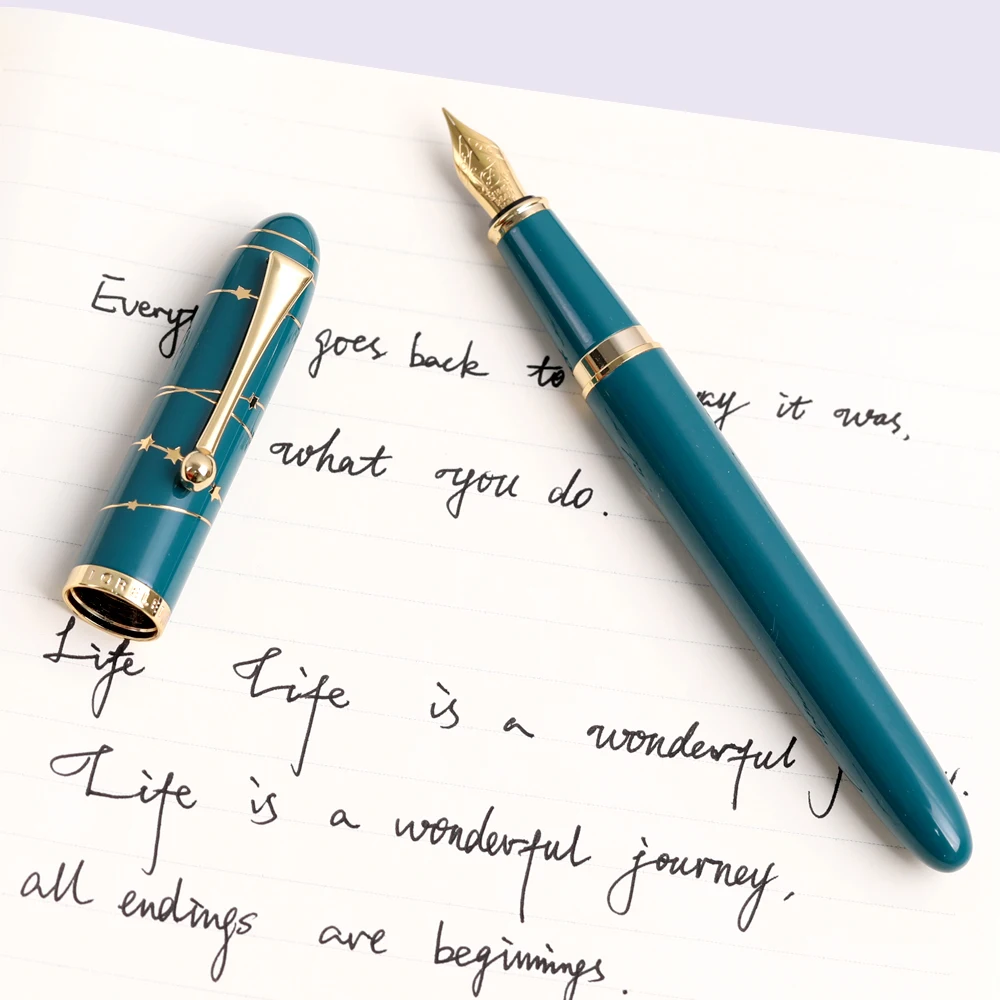 Every goes back to way it was,
what you do.
Life Life is a wonderful
Life is a wonderful journey,
all endings are beginnings.